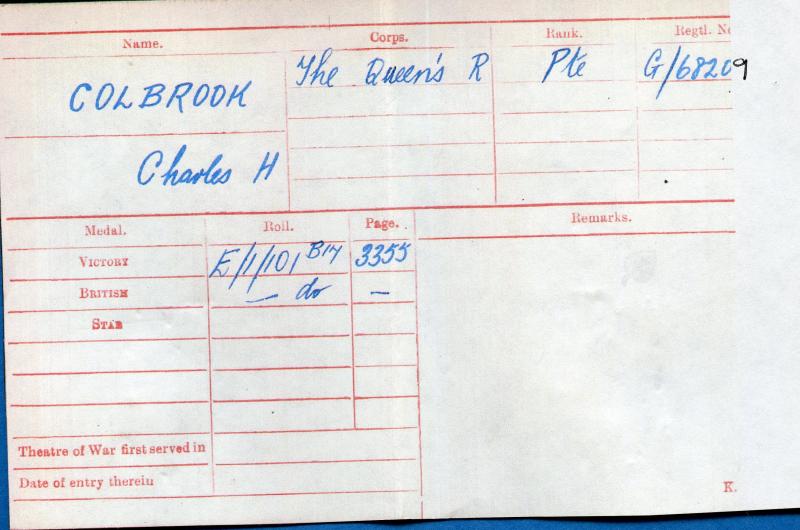 Name. Corps. Rank. Regtl. No
COLBROOK The Queen's R Pte G/68209
Charles H
Medal. Roll. Page. Remarks.
VICTORY E/1/101 B17 3355
BRITISH — do —
STAR
Theatre of War first served in
Date of entry therein
K.